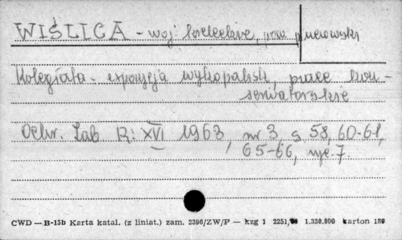 WIŚLICA - woj. kieleckie, pow. pińczowski
Kolegiata - ekspozycja wykopalisk, prace kon-
serwatorskie
Ochr. Zab. R: XVI 1963, nr 3, s 58, 60-61,
65-66, ryc. 7.
CWD — B-15b Karta katal. (z liniat.) zam. 2386/ZW/P — kzg 1 2251, 1.330.800 karton 180